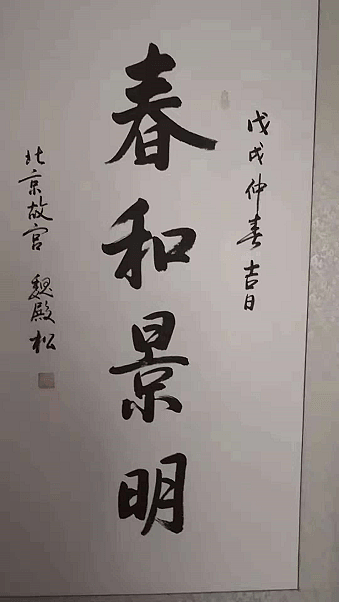 戊戌仲春吉日
春和景明
北京故宫 魏殿松